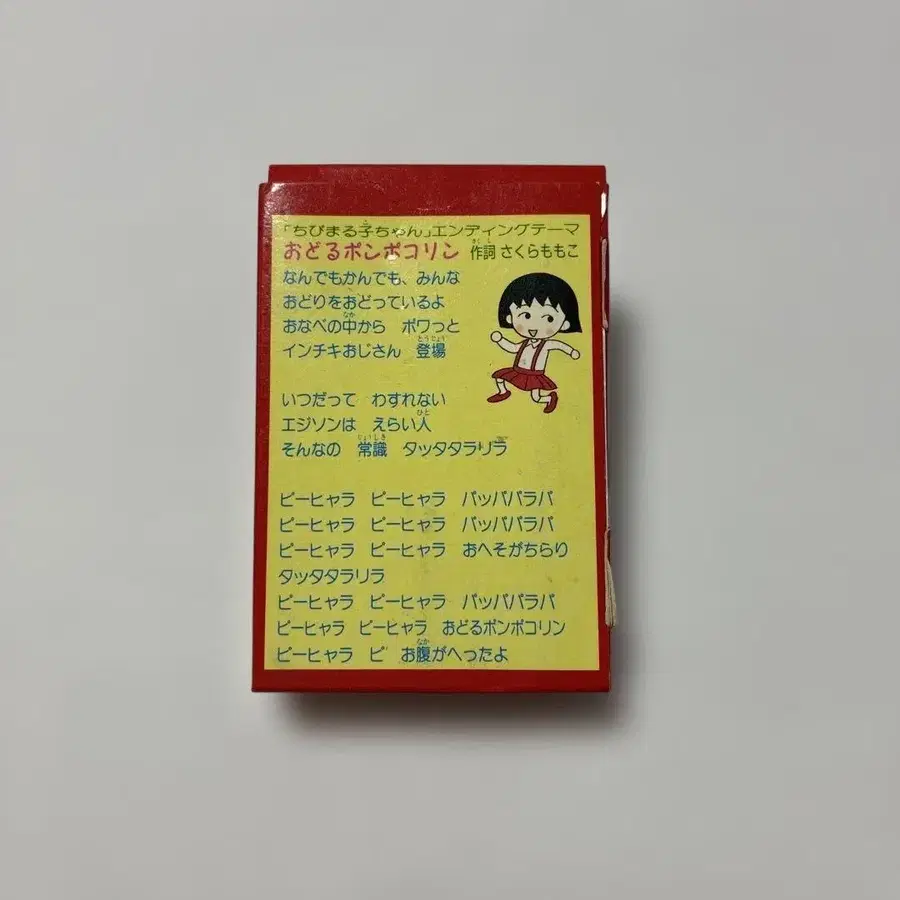 「ちびまる子ちゃん」エンディングテーマ
おどるポンポコリン 作詞 さくらももこ
なんでもかんでも、みんな
おどりをおどっているよ
おなべの中から ポワっと
インチキおじさん 登場
いつだって わすれない
エジソンは えらい人
そんなの 常識 タッタタラリラ
ピーヒャラ ピーヒャラ パッパパラパ
ピーヒャラ ピーヒャラ パッパパラパ
ピーヒャラ ピーヒャラ おへそがちらり
タッタタラリラ
ピーヒャラ ピーヒャラ パッパパラパ
ピーヒャラ ピーヒャラ おどるポンポコリン
ピーヒャラ ピ お腹がへったよ